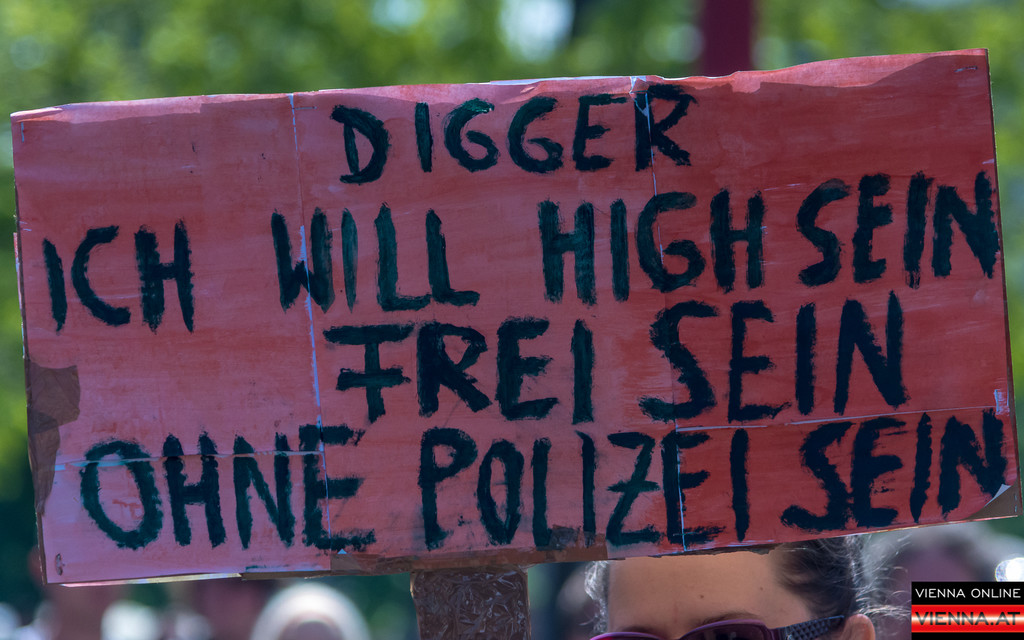 DIGGER
ICH WILL HIGH SEIN
FREI SEIN
OHNE POLIZEI SEIN
VIENNA ONLINE
VIENNA.AT